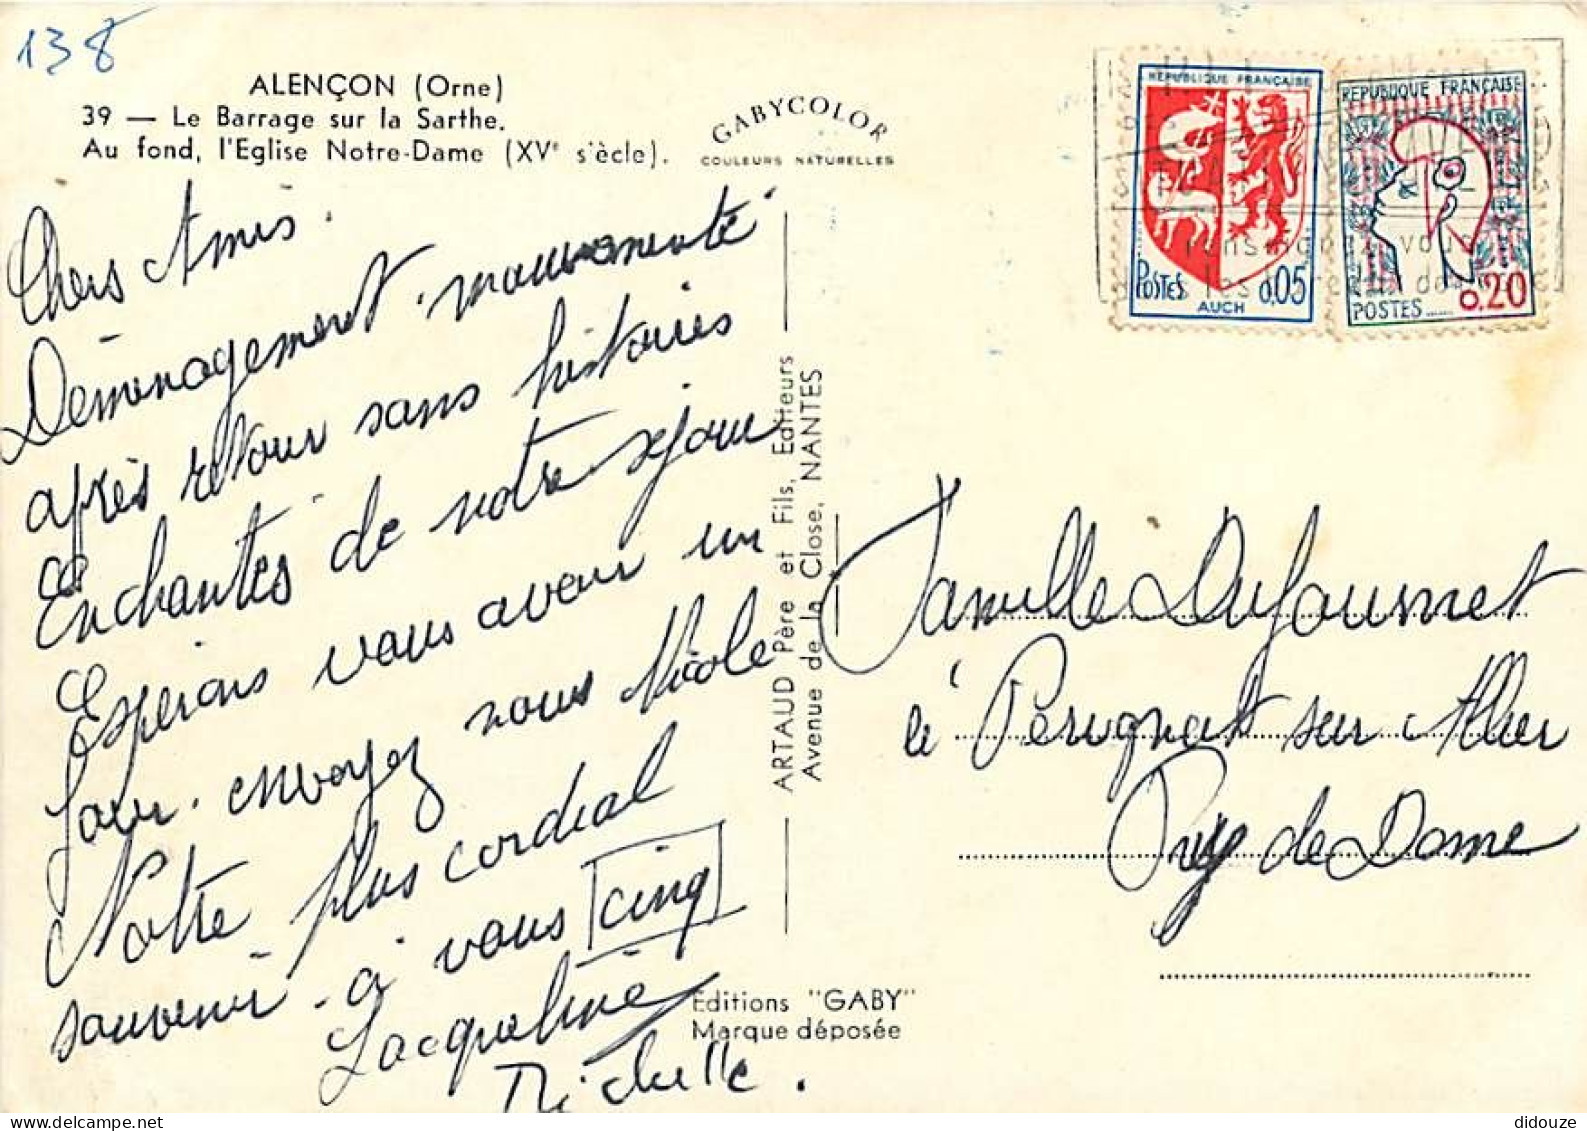 138
ALENÇON (Orne)
39 — Le Barrage sur la Sarthe.
Au fond, l'Eglise Notre-Dame (XVe s'ècle).
GABYCOLOR
COULEURS NATURELLES
Chers Amis.
Déménagement mouvementé
après retour sans histoires
Enchantés de notre séjour
Espérons vous avoir un
jour. envoyez nous Nicole
Notre plus cordial
souvenir à vous cinq
Jacqueline
Michelle.
ARTAUD Père et Fils, Editeurs
Avenue de la Close, NANTES
Editions "GABY"
Marque déposée
REPUBLIQUE FRANÇAISE
POSTES 0,05
AUCH
REPUBLIQUE FRANÇAISE
0.20
POSTES
Famille Dufournet
à Pérignat sur Allier
Puy de Dome
didouze